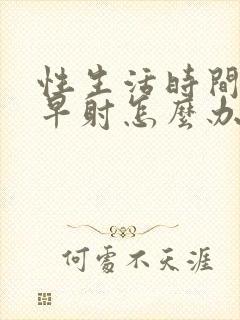 性生活時間
早射怎麼办
何處不天涯